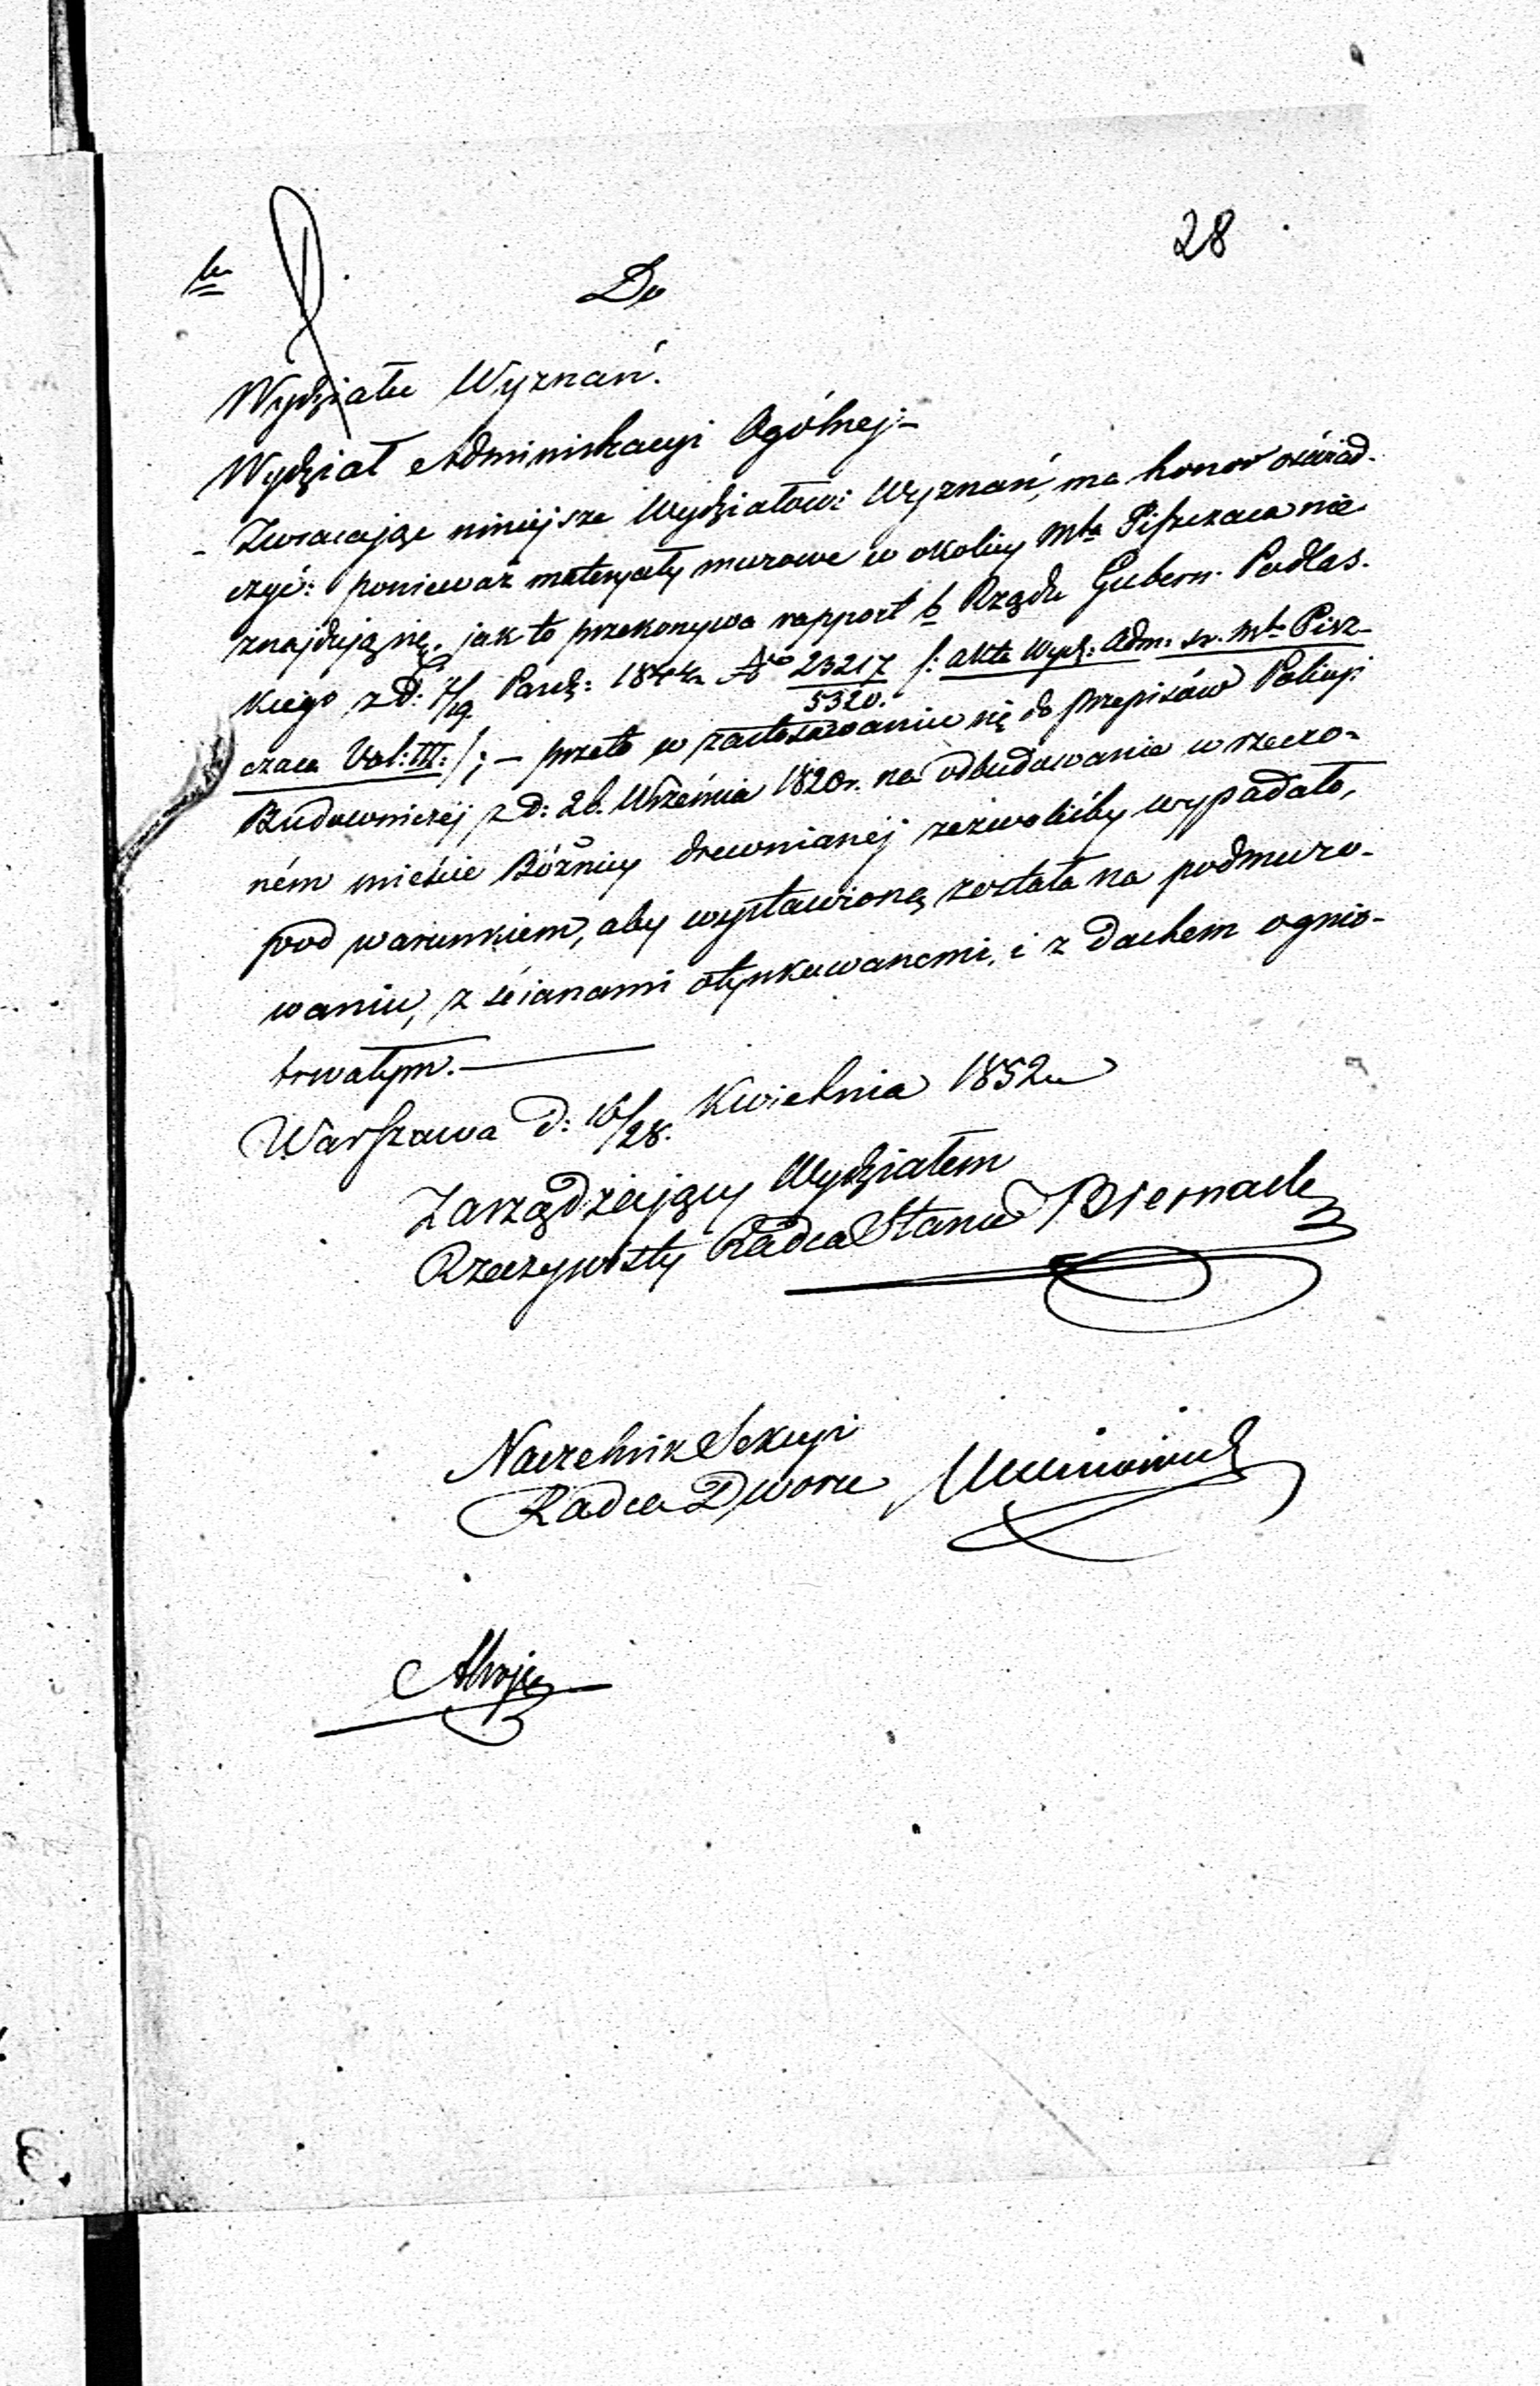 28
Do
Wydziału Wyznań.
Wydział Administracyi Ogólnej:–
– Zwracając niniejsze Wydziałowi Wyznań, ma honor oświad-
czyć: ponieważ materyały murowe w okolicy Mta Piszczaca nie
znajdują się, jak to przekonywa rapport b. Rządu Gubern. Podlas-
kiego z d: 7/19. Paźdz: 1844 r. No 23217/5320. /: akta Wydz: Adm: Mta Pisz-
czaca Vol: III: /; – przeto w zastosowaniu się do przepisów Policyi
Budowniczej z d: 26. Września 1820 r. na odbudowanie w rzeczo-
ném mieście Bóżnicy drewnianéj zezwolićby wypadało,
pod warunkiem, aby wystawioną została na podmuro-
waniu, z ścianami otynkowanemi, i z dachem ognio-
trwałym.–
Warszawa d: 16/28. Kwietnia 1852 r.
Zarządzający Wydziałem
Rzeczywisty Radca Stanu Biernacki
Naczelnik Sekcyi
Radca Dworu